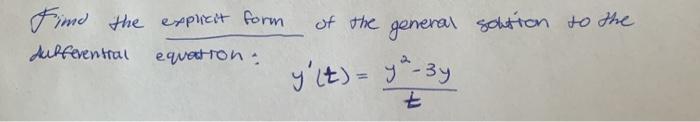 Find the explicit form of the general solution to the
differential equation:
y'(t) = y²-3y / t